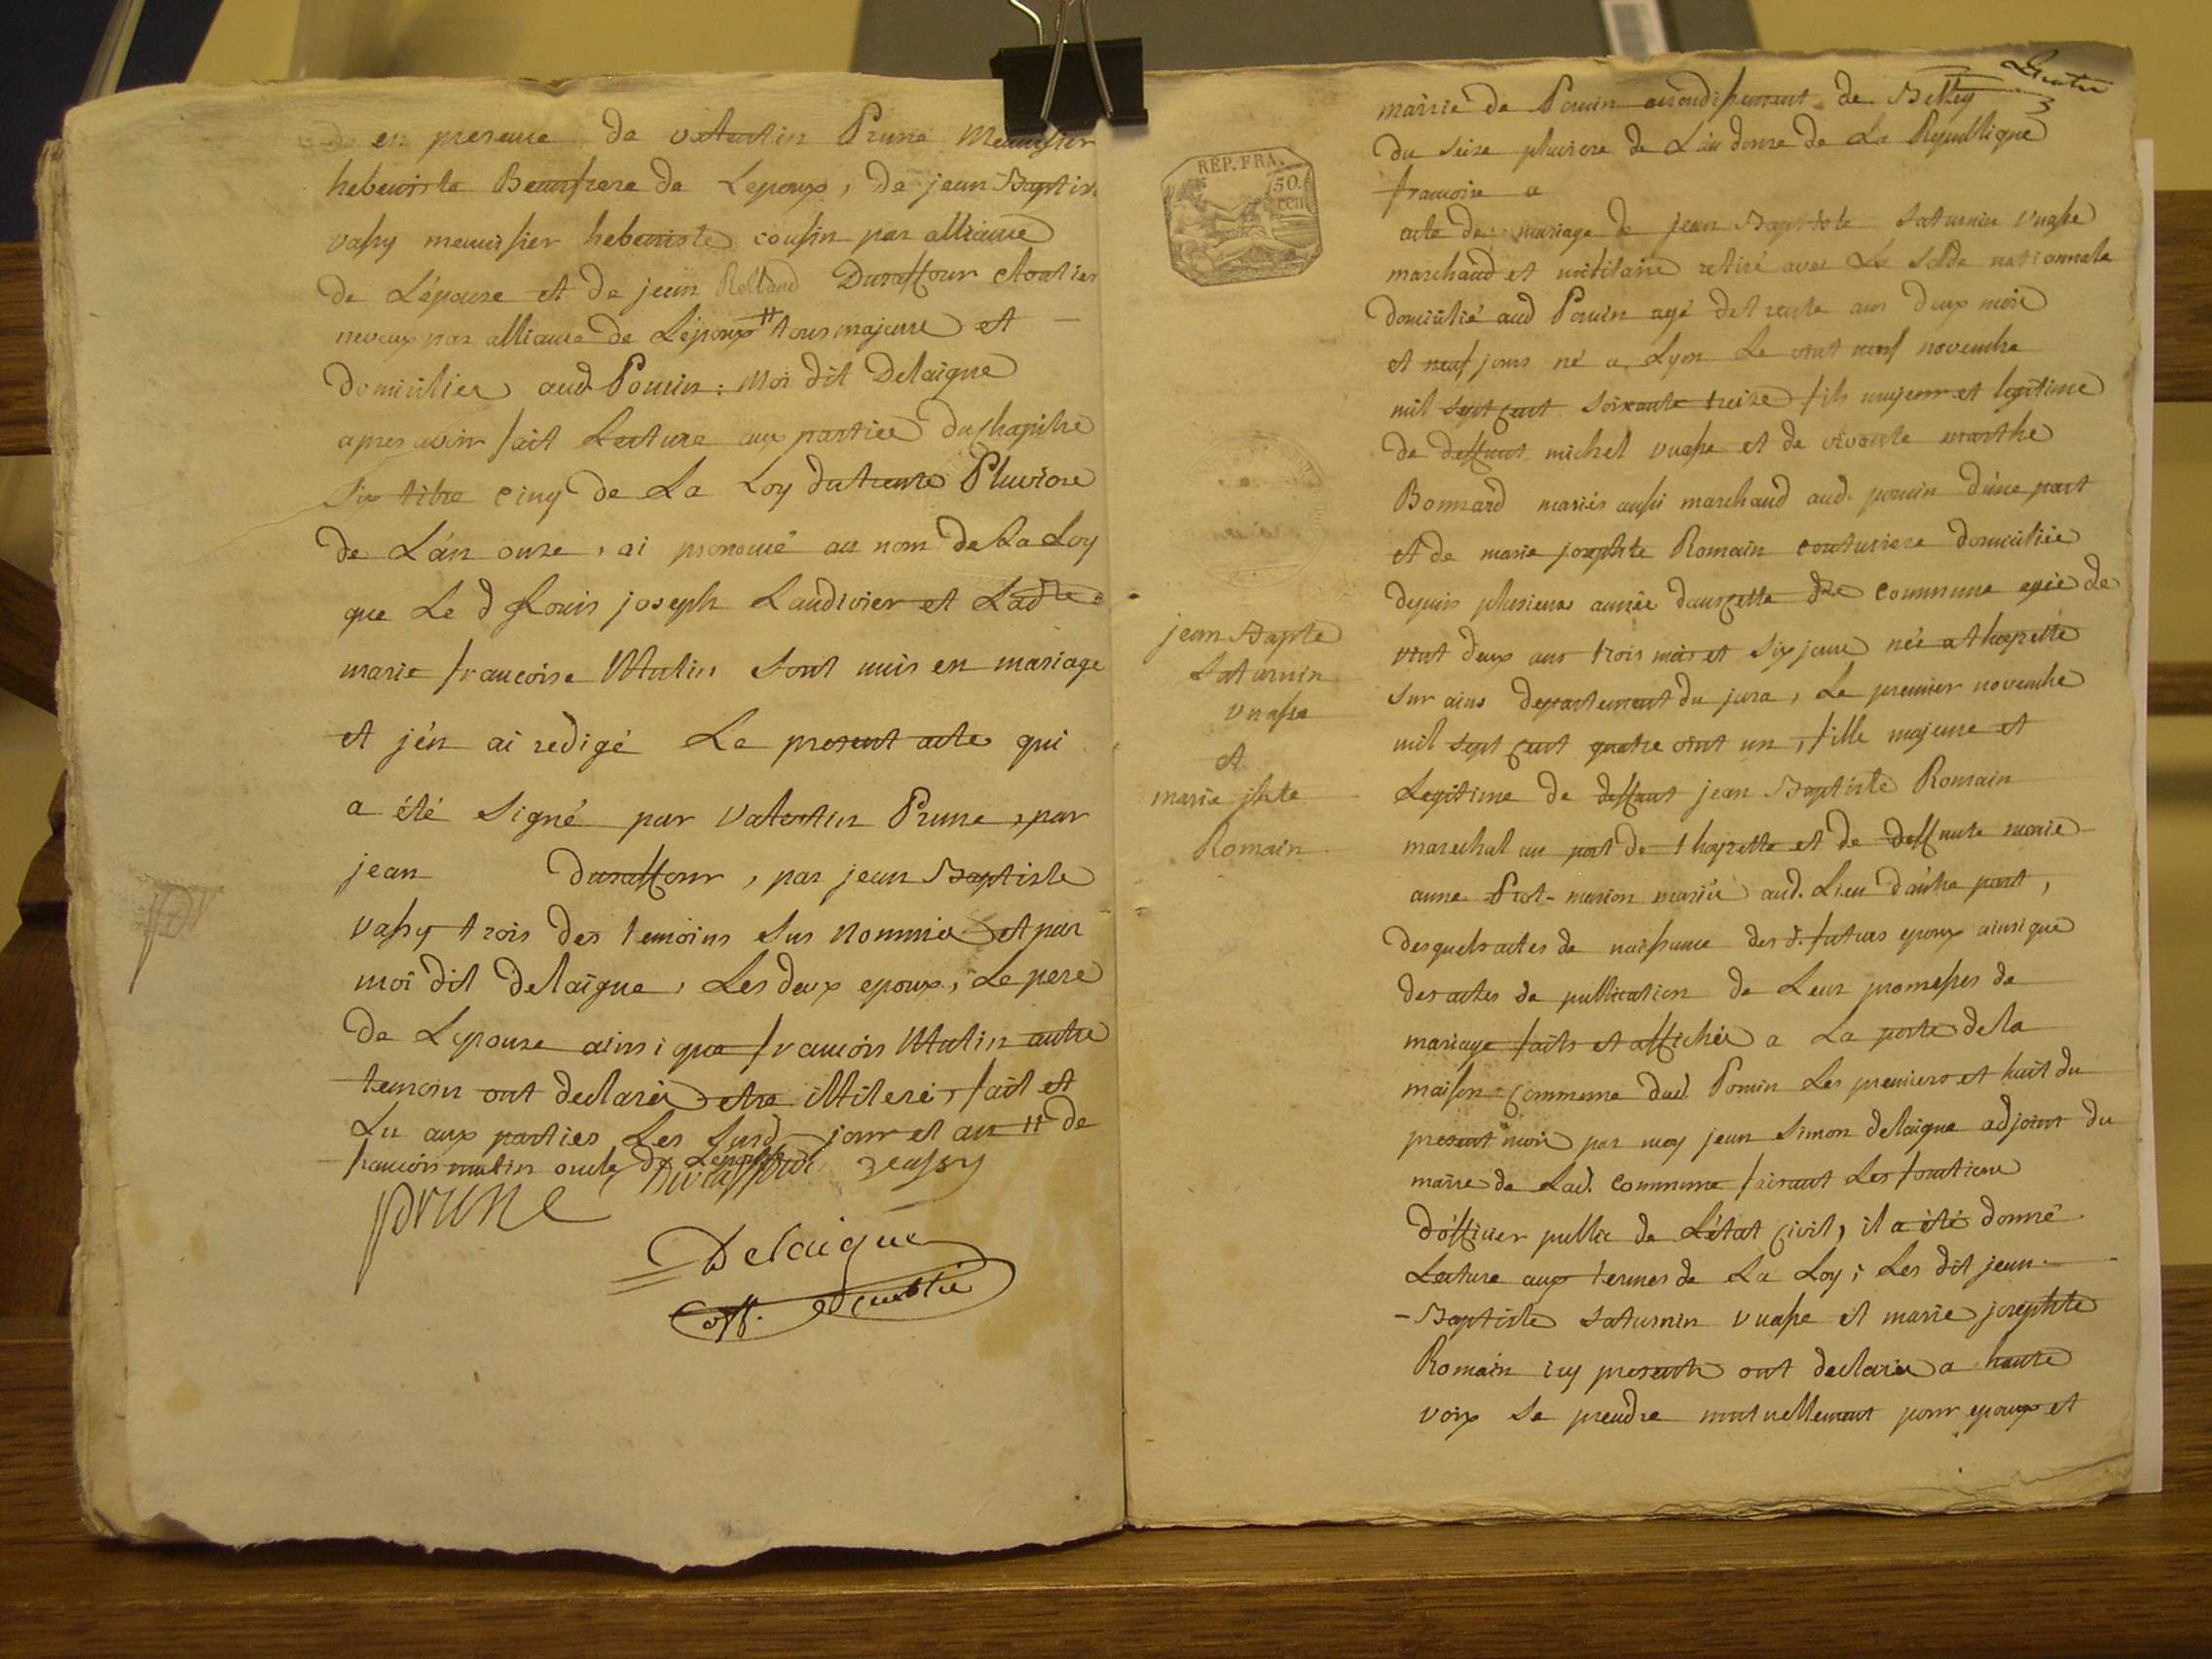 en presence de valentin Prune Menuisier
hebeniste Beaufrere de Lepoux, de jean Baptis
vassy menuisier hebeniste cousin par alliance
de Lépouse et de jean Rolland Durassour cloutier
neveux par alliance de Lépoux # tous majeurs et
domiciliés aud Poncin: Moi dit Delaigue
apres avoir fait Lecture aux parties du chapitre
six titre cinq de La Loy du trente Pluviose
de L'an onze, ai prononcé au nom de La Loy
que Le d Louis joseph Landivier et Ladte
marie francoise Mutin sont unis en mariage
et j'én ai redigé Le present acte qui
a été Signé par Valentin Prune, par
jean Durassour, par jean Baptiste
vassy trois des temoins sus nommés et par
moi dit delaigue, Les deux epoux, Le pere
de Lepouse ainsi que francois Mutin autre
temoin ont declarés etre illiteré, fait et
Lu aux parties Les susd jour et an # de
francois mutin oncle de Lepouse
Durassour veassy
prune
Delaigue
off. public
Trente
3
mairie de Poncin arondissement de Belley
du seize pluviose de L'an douze de La Republique
francoise a
RÉP. FRA.
50.
cen
acte de mariage de jean Baptiste Saturnin vuasse
marchand et militaire retiré avec La Solde nationnale
domicilié aud Poncin agé de trente ans deux mois
et neuf jours né a Lyon Le vint neuf novembre
mil sept cent soixante treize fils majeur et legitime
de deffunt michel vuasse et de vivante marthe
Bonnard mariés aussi marchand aud. poncin d'une part
et de marie josephte Romain couturiere domiciliée
depuis plusieurs année dans cette dte commune agée de
vint deux ans trois mois et six jours née a thoirette
sur ains departement du jura, Le premier novembre
mil sept cent quatre vint un, fille majeure et
Legitime de deffunt jean Baptiste Romain
marechal au port de thoirette et de deffunte marie
anne Piot-marion mariés aud. Lieu d'autre part,
jean Bapte
Saturnin
vuasse
et
marie jhte
Romain
desquels actes de naissance des d. futurs epoux ainsi que
des actes de publication de Leur promesses de
mariage faits et affichés a La porte de la
maison commune dud. Poncin Les premiers et huit du
present mois par moy jean Simon delaigue adjoint du
maire de Lad. commune faisant Les fonctions
d'officier public de L'état civil, il a été donné
Lecture aux termes de La Loy; Les dit jean
-Baptiste Saturnin vuasse et marie josephte
Romain icy presents ont declarés a haute
voix se prendre mutuellement pour epoux et